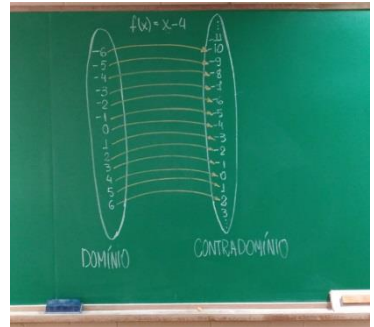 f(x) = x-4
-6
-5
-4
-3
-2
-1
0
1
2
3
4
5
6
-10
-9
-8
-7
-6
-5
-4
-3
-2
-1
0
1
2
3
DOMÍNIO
CONTRADOMÍNIO